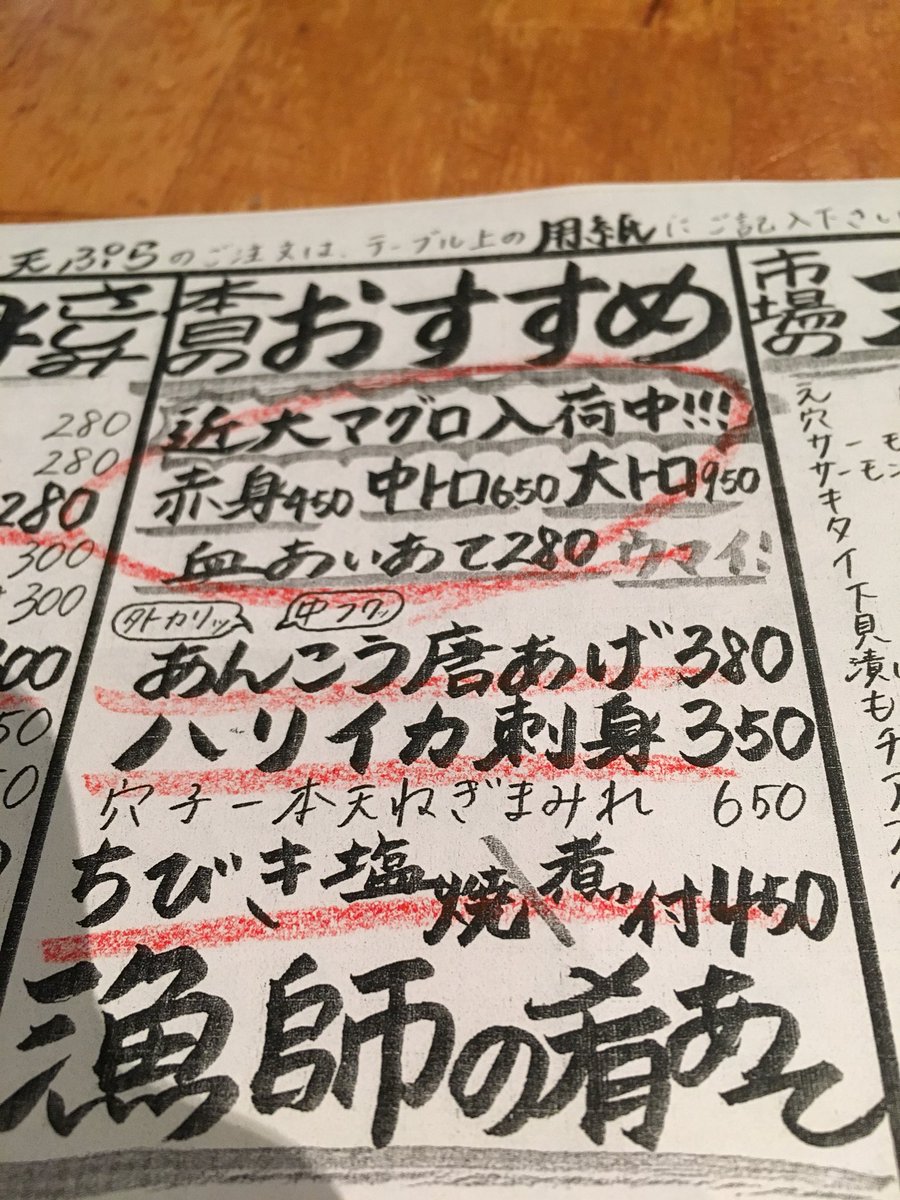 天ぷらのご注文は、テーブル上の用紙にご記入下さい
さしみ
280
280
280
300
300
本日のおすすめ
近大マグロ入荷中!!!
赤身450 中トロ650 大トロ950
血あいあて280 ウマイ!
外カリッ 中フワッ
あんこう唐あげ380
ハリイカ刺身350
穴子一本天ねぎまみれ 650
ちびき塩焼\煮付450
漁師の肴あて
市場の